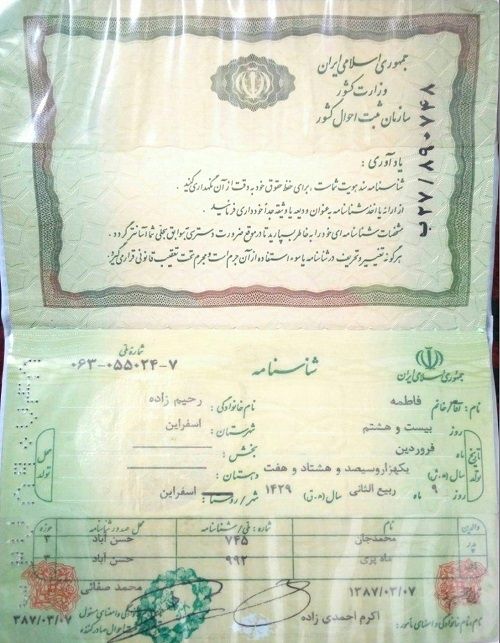 جمهوری اسلامی ایران
وزارت کشور
سازمان ثبت احوال کشور
ب۲۷/۸۹۰۷۴۸
یادآوری :
شناسنامه سند هویت شماست ، برای حفظ حقوق خود به دقت از آن نگهداری کنید .
از ارائه یا اخذ شناسنامه به عنوان ودیعه یا وثیقه جدا خودداری فرمائید .
مشخصات شناسنامه ای خود را به خاطر بسپارید تا در موقع ضرورت دسترسی به سوابق سجلی شما آسانتر گردد .
هرگونه تغییر و تحریف در شناسنامه یا سوء استفاده از آن جرم است و مجرم تحت تعقیب قانونی قرار می گیرد .
جمهوری اسلامی ایران
شناسنامه
شماره ملی
۰۶۳-۰۵۵۰۲۴-۷
نام آقا/خانم : فاطمه
نام خانوادگی : رحیم زاده
تاریخ تولد
روز بیست و هشتم
شهرستان : اسفراین
محل تولد
ماه فروردین
بخش :
سال (ه.ش) یکهزاروسیصد و هشتاد و هفت
دهستان :
روز ۹ ماه ربیع الثانی سال (ه.ق) ۱۴۲۹
شهر/روستا : اسفراین
والدین نام شماره : ملی/شناسنامه محل صدور شناسنامه حوزه
پدر محمدجان ۷۴۵ حسن آباد ۳
ماه پری ۹۹۲ حسن آباد ۳
۱۳۸۷/۰۳/۰۷
محمد صفائی
نام و نام خانوادگی و امضای مامور : اکرم احمدی زاده
۳۸۷/۰۳/۰۷